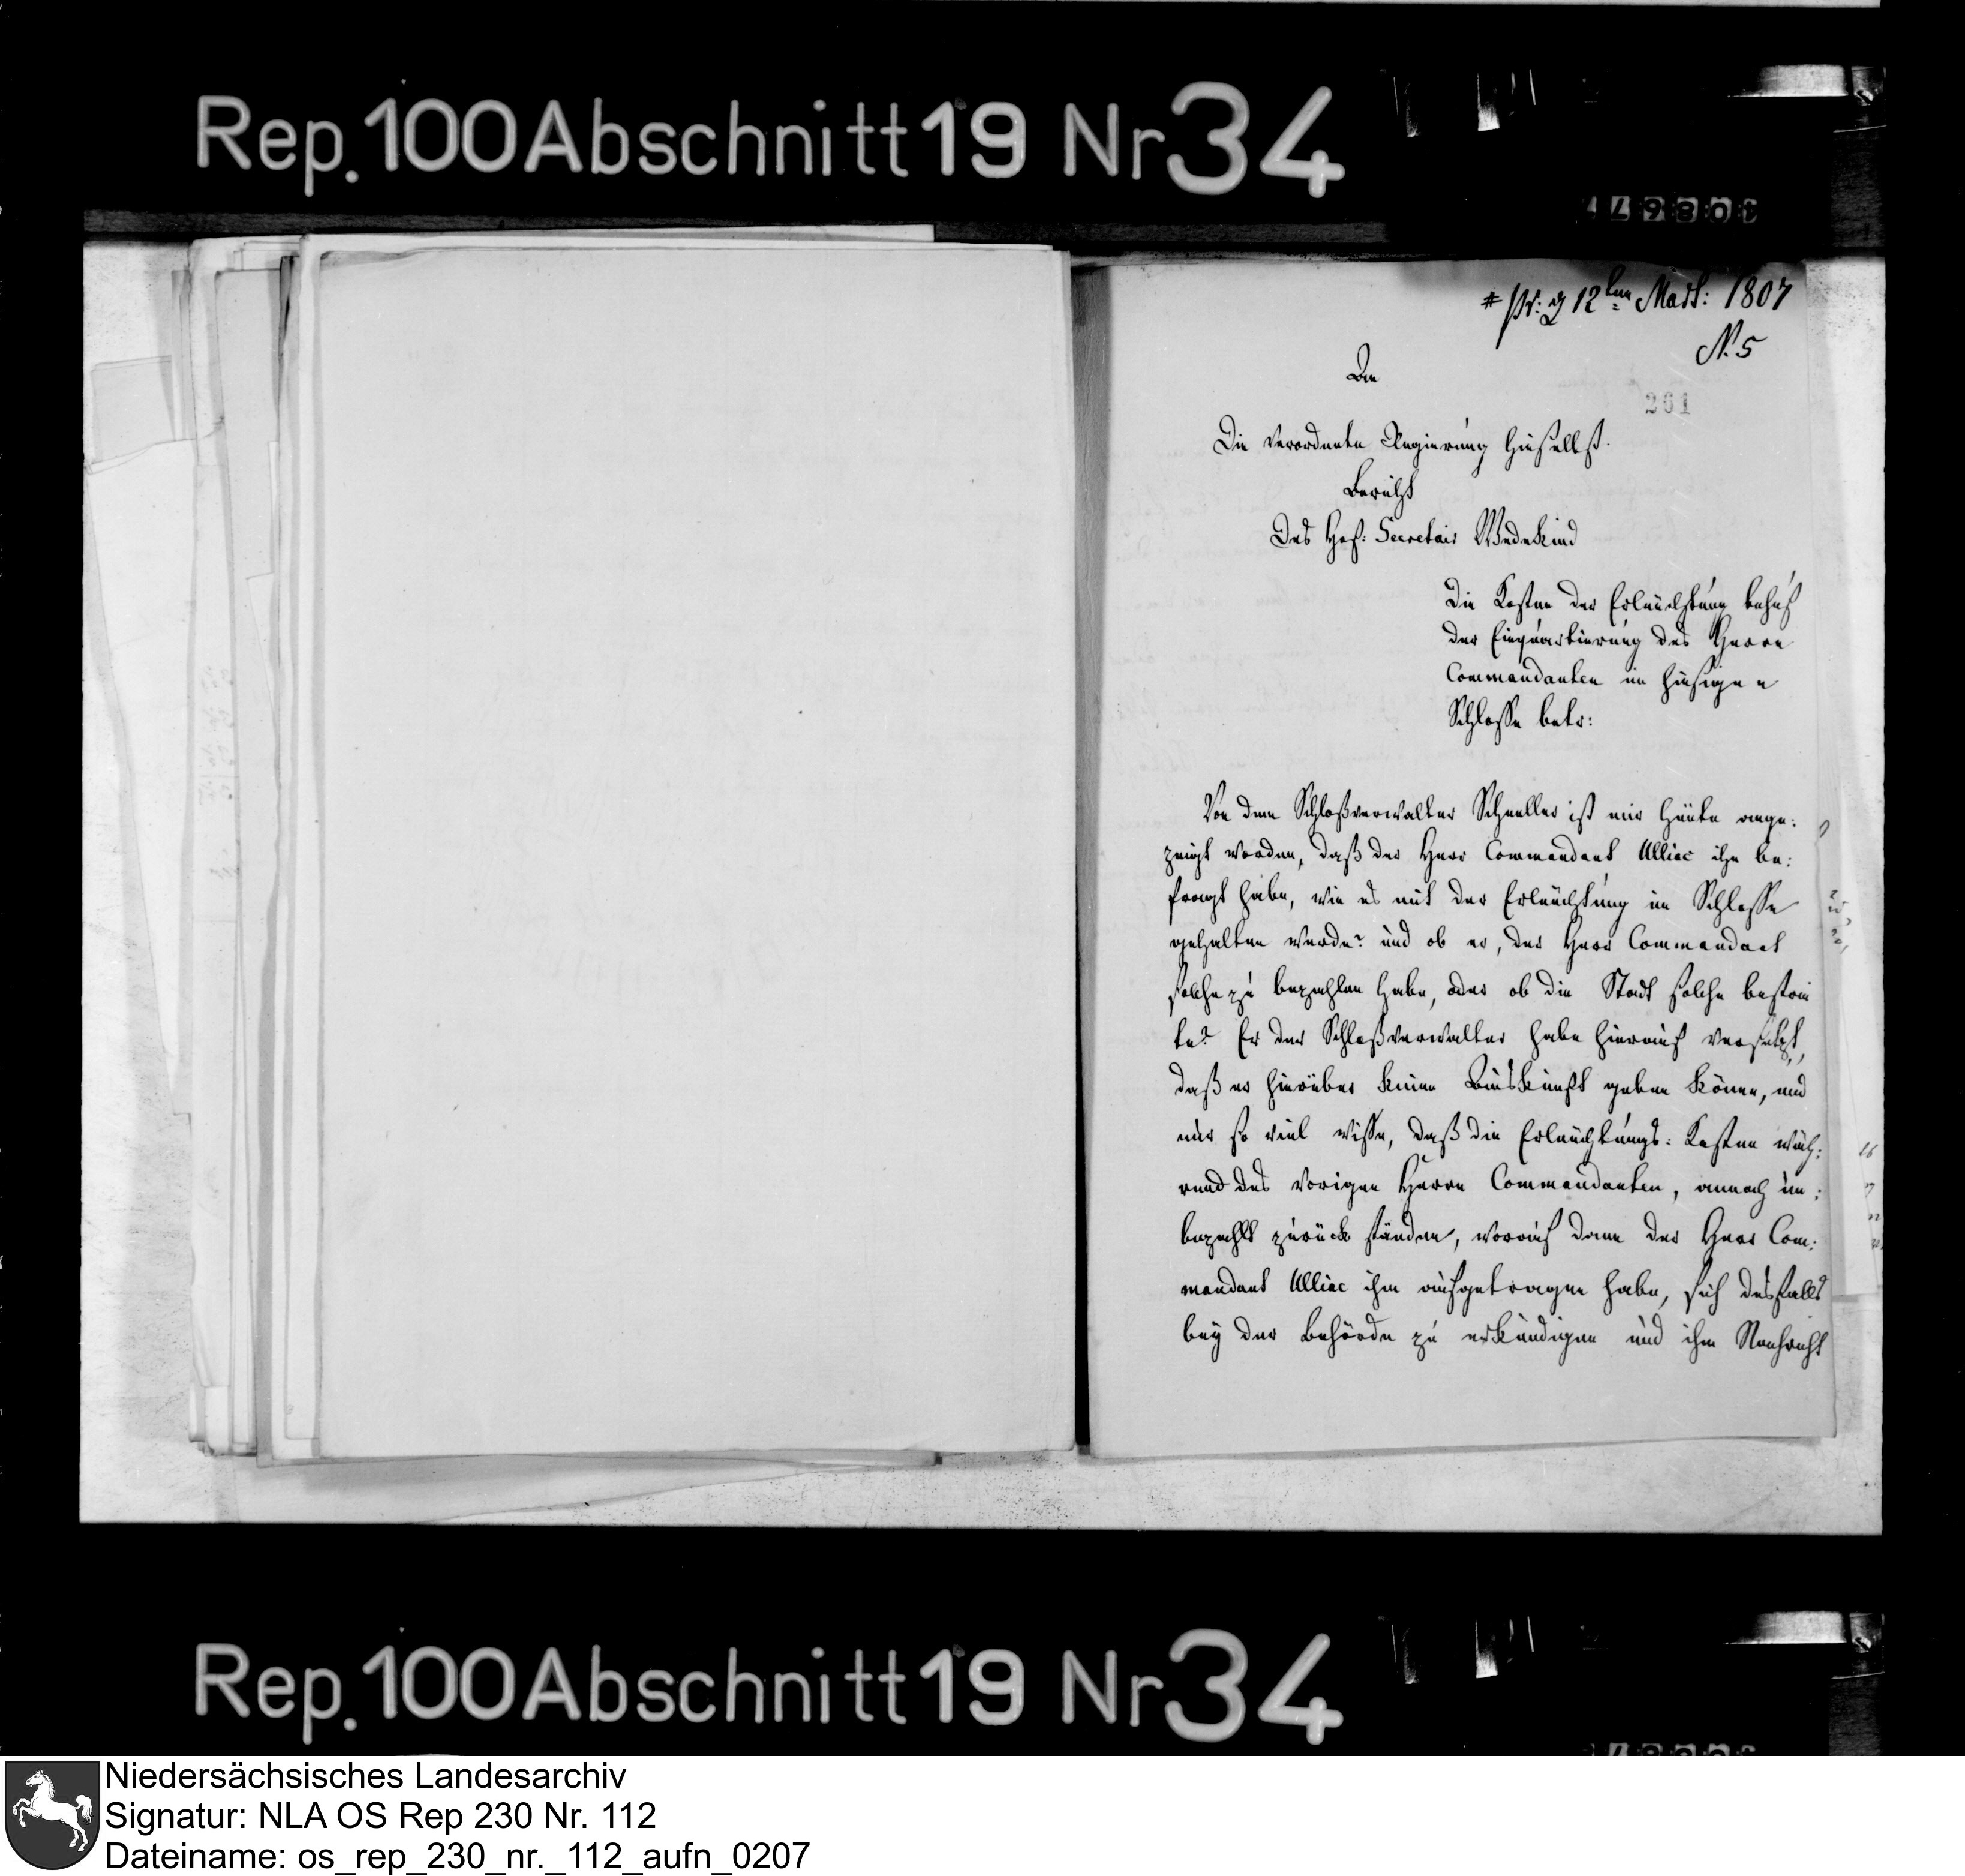 Rep. 100 Abschnitt 19 Nr 34
# pr: d 12ten Mart: 1807
N. 5
An
261
Die verordnete Regierung hieselbst.
Bericht
Des Hof: Secretair Wedekind
Die Kosten der Erleuchtung behuf
der Einquartierung des Herrn
Commandanten im hiesigen
Schlosse betr:
Von dem Schloßverwalter Schneller ist mir heute ange:
zeigt worden, daß der Herr Commandant Ulliac ihn be:
fragt habe, wie es mit der Erleuchtung im Schlosse
gehalten werde? und ob er, der Herr Commandant
solche zu bezahlen habe, oder ob die Stadt solche bestrei
te? Er der Schloßverwalter habe hierauf versetzt,
daß er hierüber keine Auskunft geben könne, und
nur so viel wisse, daß die Erleuchtungs: Kosten wäh:
rend des vorigen Herrn Commandanten, annoch un:
bezahlt zurück ständen, worauf dann der Herr Com:
mandant Ulliac ihm aufgetragen habe, sich desfalls
bey der Behörde zu erkundigen und ihm Nachricht
Rep. 100 Abschnitt 19 Nr 34
Niedersächsisches Landesarchiv
Signatur: NLA OS Rep 230 Nr. 112
Dateiname: os_rep_230_nr._112_aufn_0207